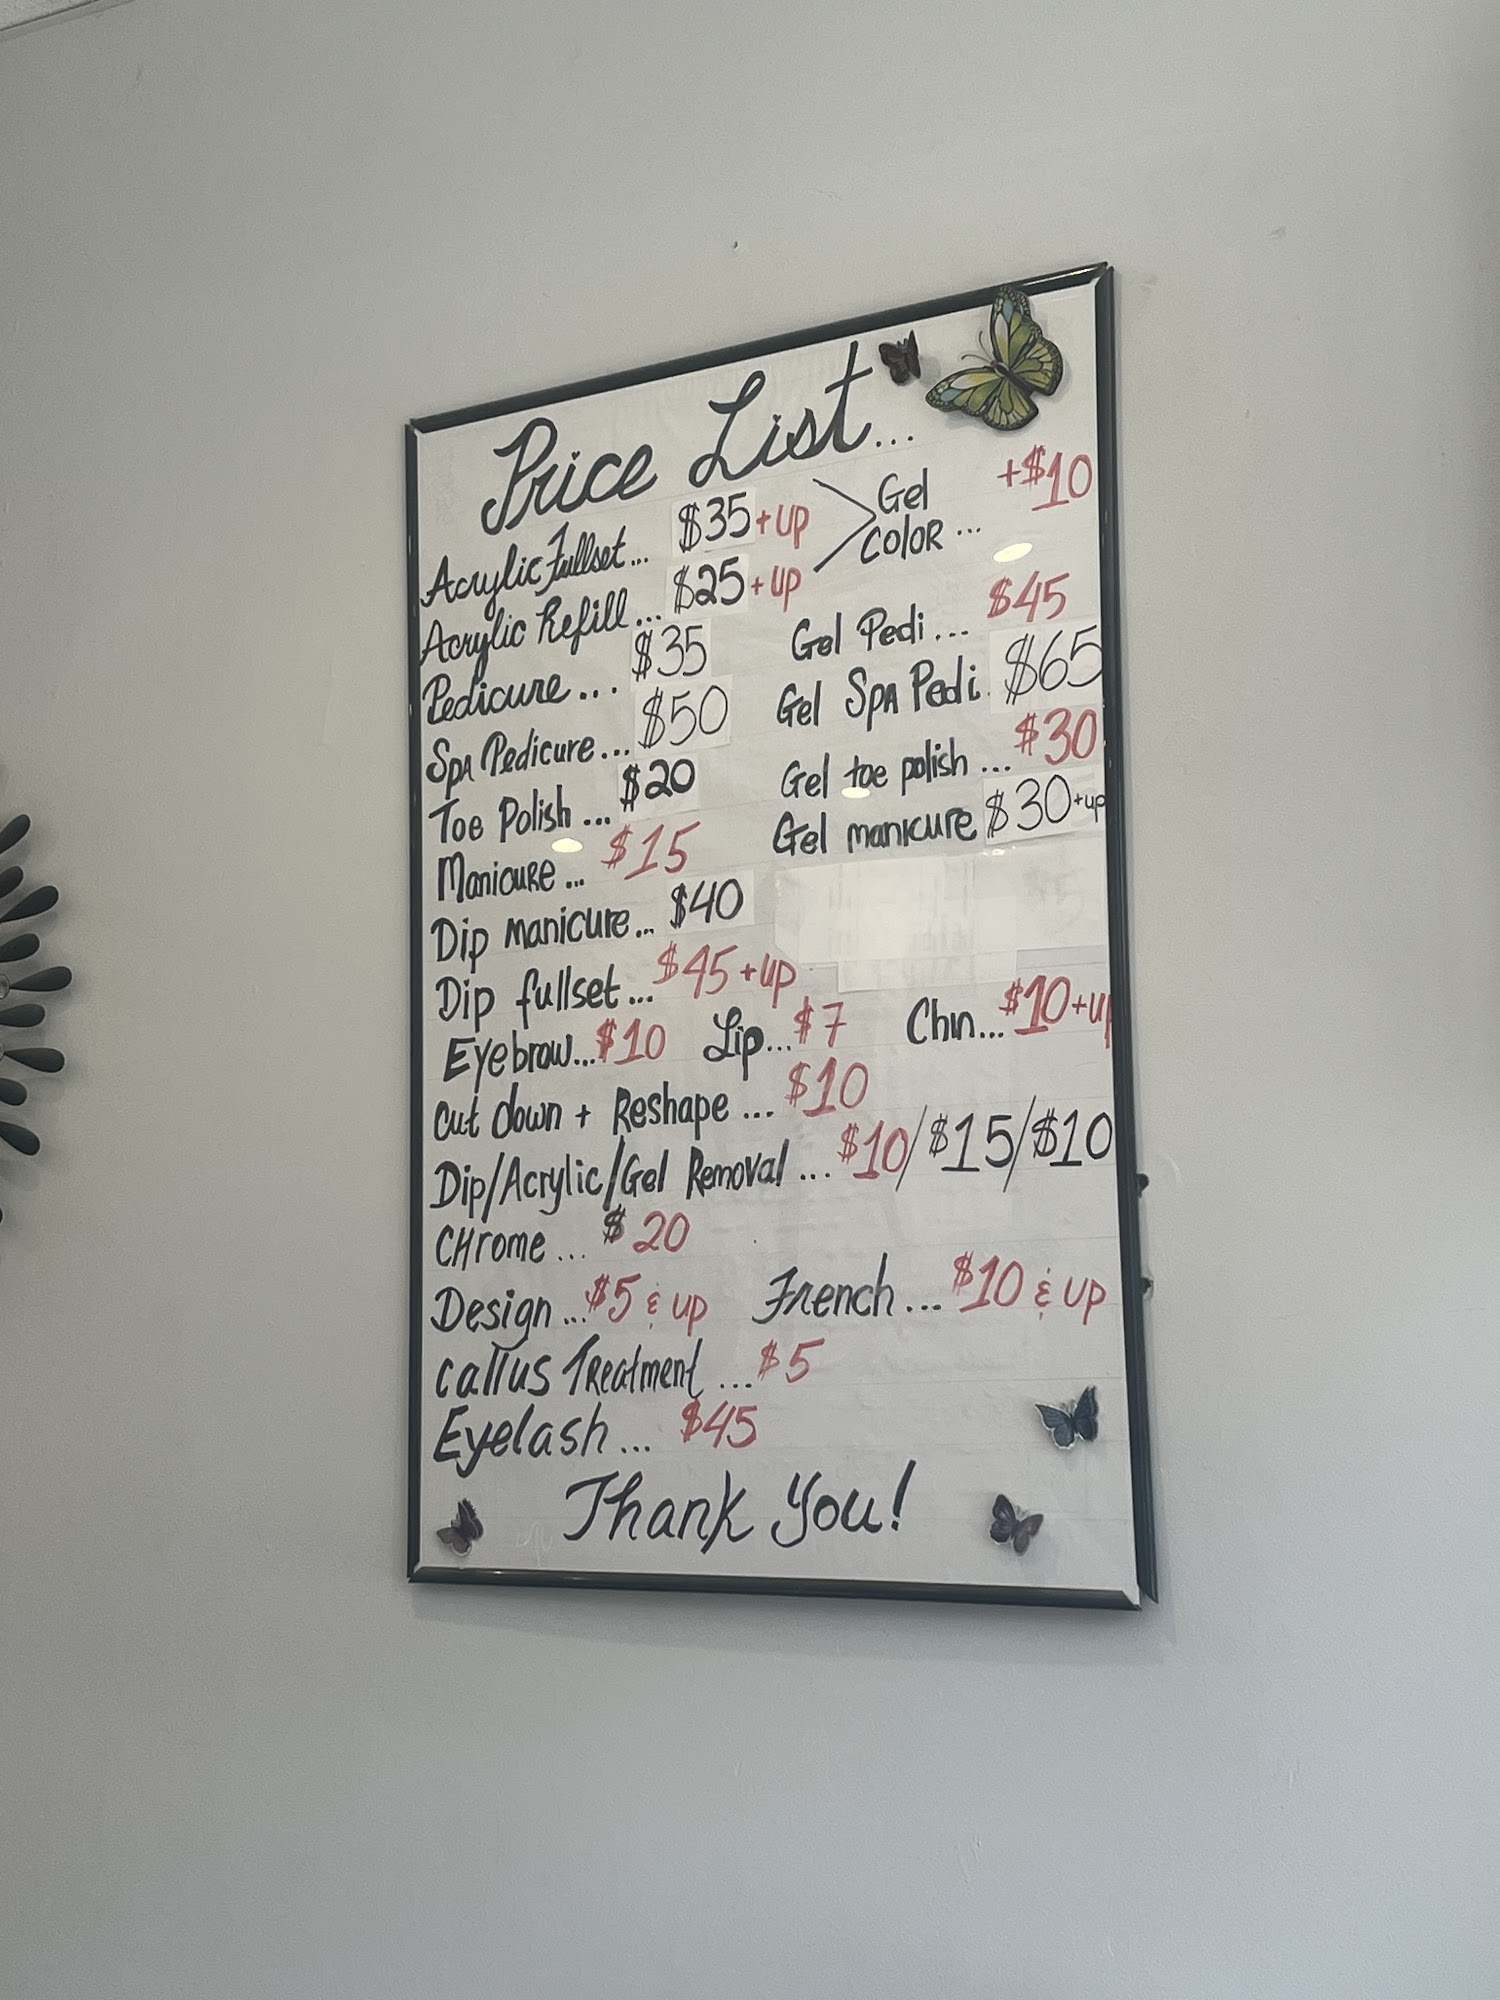 Price List...
Acrylic Fullset... $35 + up
Acrylic Refill... $25 + up
Gel Color... +$10
Pedicure... $35
Gel Pedi... $45
Spa Pedicure... $50
Gel Spa Pedi. $65
Toe Polish... $20
Gel toe polish... $30
Manicure... $15
Gel manicure $30 + up
Dip manicure... $40
Dip fullset... $45 + up
Eyebrow... $10 Lip... $7 Chin... $10 + up
Cut down + Reshape... $10
Dip/Acrylic/Gel Removal... $10/$15/$10
CHrome... $20
Design... $5 & up French... $10 & up
callus Treatment... $5
Eyelash... $45
Thank You!